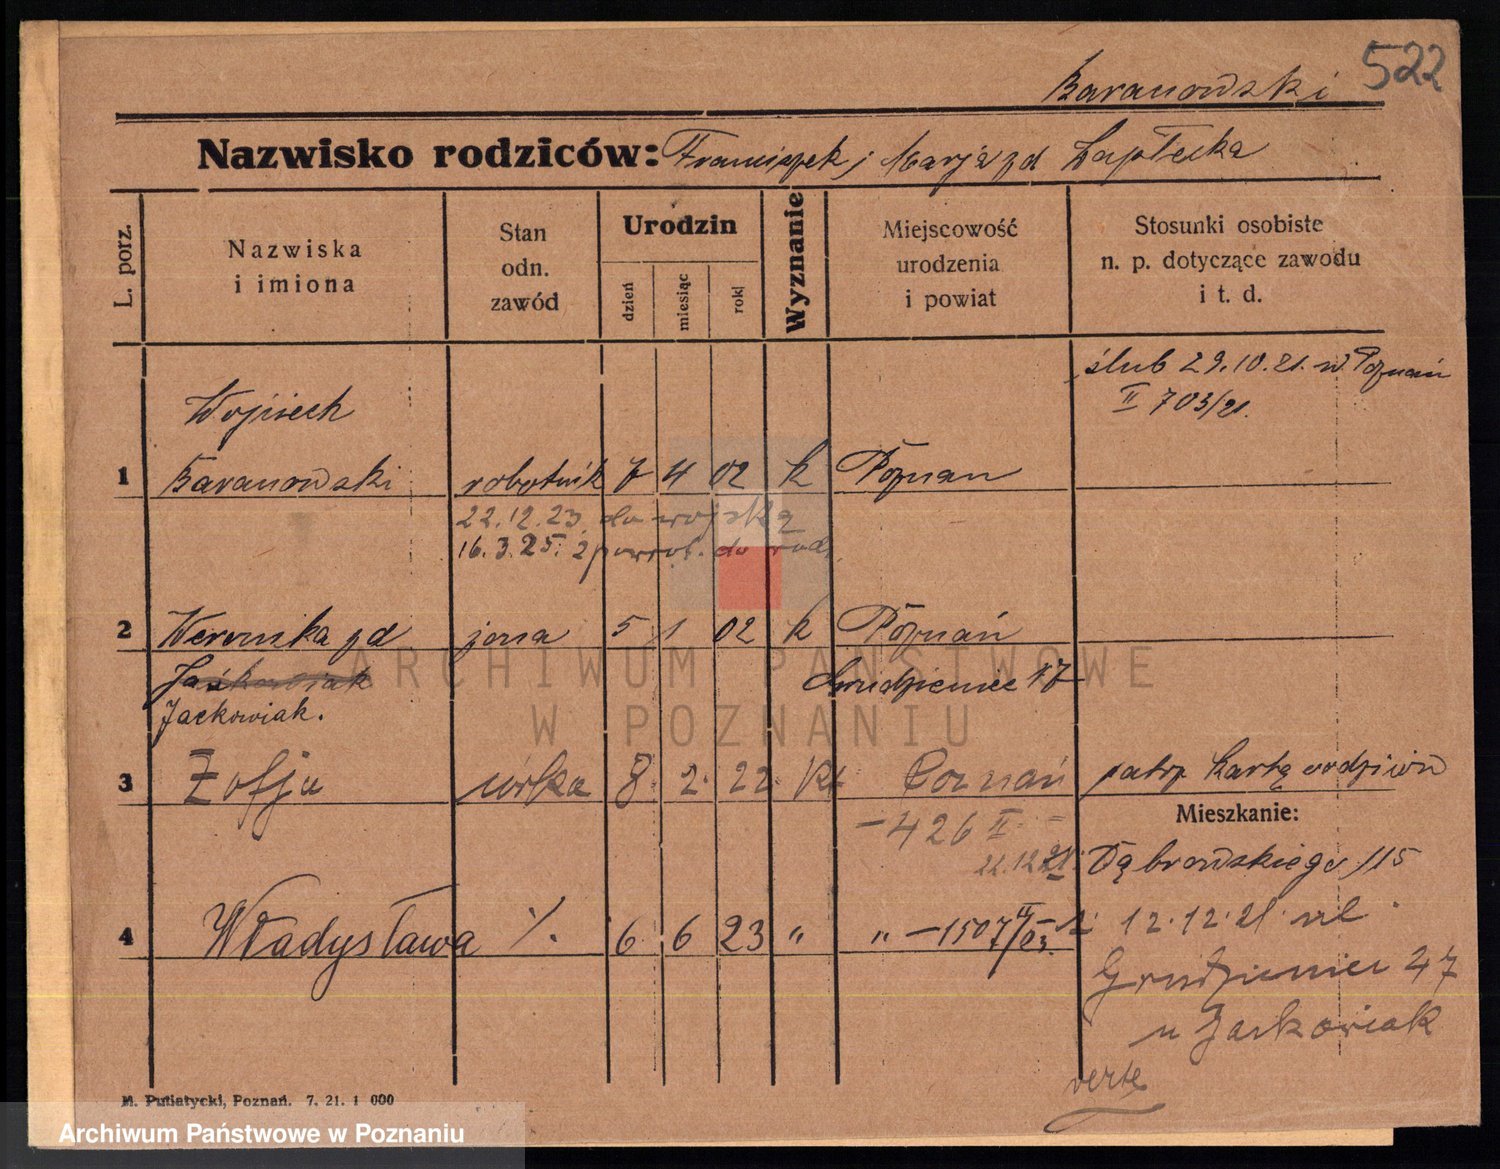 522
Baranowski
Nazwisko rodziców: Franciszek i Marja zd
L. porz.
Nazwiska i imiona
Stan odn. zawód
Urodzin
dzień
miesiąc
rok
Wyznanie
Miejscowość urodzenia i powiat
Stosunki osobiste n. p. dotyczące zawodu i t. d.
ślub 29.10.21. w. Poznań
II 703/21.
Wojciech
1 Baranowski robotnik 7 4 02 k Poznan
22.12.23. do wojska
16.3.25. z powrot. do rodz
2 Weronika zd żona 5 1 02 k Poznań
Jaśkowiak Grudzieniec 17
Jackowiak.
3 Zofja córka 8. 2. 22. kt Poznań patrz kartę rodziców
Mieszkanie:
-426 II
22.12.21. Dąbrowskiego 115
4 Władysława ·/. 6 6 23 " " -1507 II 12.12.21 ul
Grudzieniec 47
u Jackowiak
verte
M. Putiatycki, Poznań. 7. 21. 1 000
ARCHIWUM PAŃSTWOWE
W POZNANIU
Archiwum Państwowe w Poznaniu